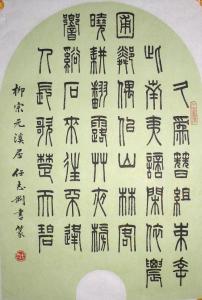 久為簪組束幸
此南夷謫閒依農
圃鄰偶似山林客
曉耕翻露艸夜榜
響谿石來往不逢
人長歌楚天碧
柳宗元溪居 任志書篆